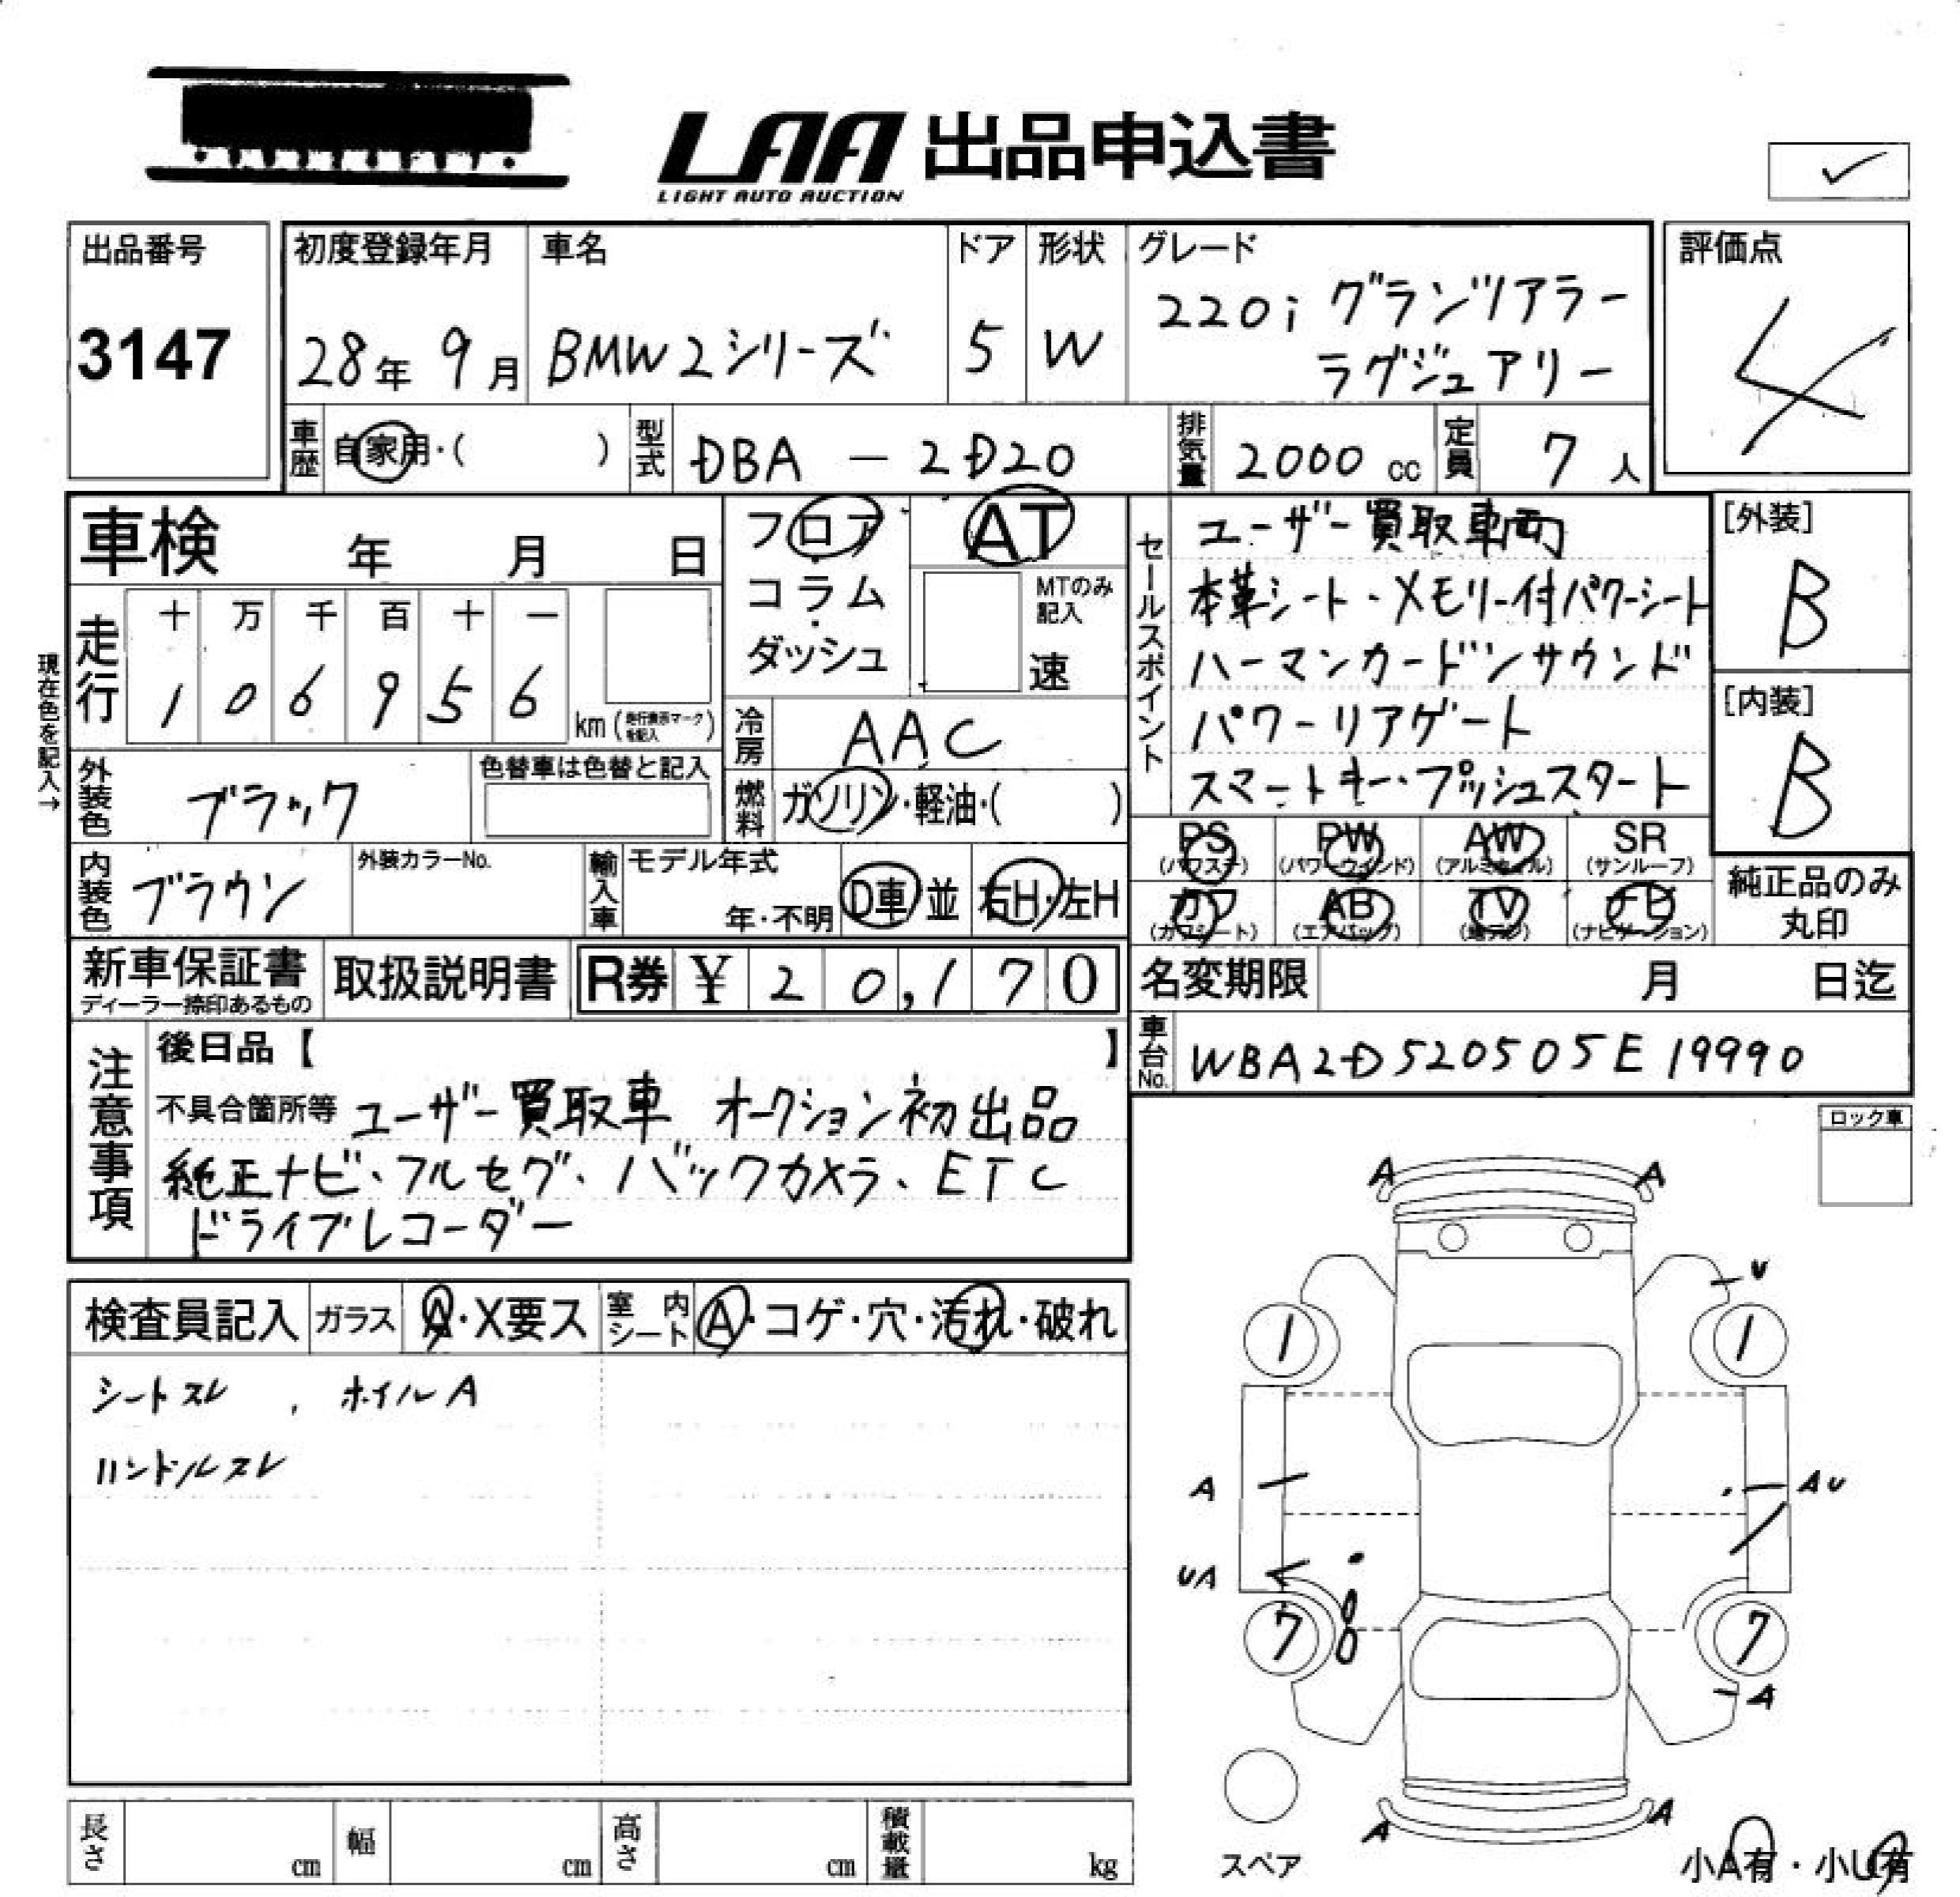 LAA 出品申込書
LIGHT AUTO AUCTION
出品番号
3147
初度登録年月
28年 9月
車名
BMW2シリーズ
ドア
5
形状
W
グレード
220i グランツアラー
ラグジュアリー
評価点
4
車歴
自家用・( )
型式
DBA - 2D20
排気量
2000 cc
定員
7 人
車検 年 月 日
フロア・
コラム
・
ダッシュ
AT
MTのみ
記入
速
現在色を記入→
走行
十 万 千 百 十 一
1 0 6 9 5 6
km (走行表示マークを記入)
冷房
AAC
外装色
ブラック
色替車は色替と記入
燃料
ガソリン・軽油・( )
内装色
ブラウン
外装カラーNo.
輸入車
モデル年式
年・不明
D車 並
右H・左H
セールスポイント
ユーザー買取車両
本革シート・メモリー付パワーシート
ハーマンカードンサウンド
パワーリアゲート
スマートキー・プッシュスタート
[外装]
B
[内装]
B
PS
(パワステ)
PW
(パワーウィンド)
AW
(アルミホイル)
SR
(サンルーフ)
カワ
(カワシート)
AB
(エアバッグ)
TV
(地デジ)
ナビ
(ナビゲーション)
純正品のみ
丸印
新車保証書
ディーラー捺印あるもの
取扱説明書
R券 ¥ 20,170
名変期限 月 日迄
車台No.
WBA2D520505E19990
注意事項
後日品【 】
不具合箇所等 ユーザー買取車 オークション初出品
純正ナビ・フルセグ、バックカメラ、ETC
ドライブレコーダー
ロック車
検査員記入
ガラス
A・X要ス
室内シート
A・コゲ・穴・汚れ・破れ
シートスレ , ホイルA
ハンドルスレ
A A
U
1 1
A AU
UA
7 7
A
A A
スペア
小A有・小U有
長さ cm
幅 cm
高さ cm
積載量 kg